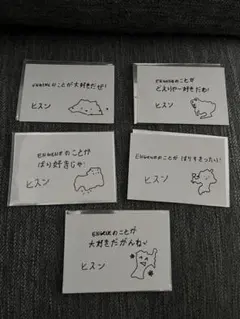 ENGENEのことが大好きだぜ!
ヒスン
ENGENEのことが
どえりゃー好きだも!
ヒスン
ENGENEのことが
ばり好きじゃ!
ヒスン
ENGENEのことが ばりすきったい!
ヒスン
ENGENEのことが
大好きだがんね〜
ヒスン